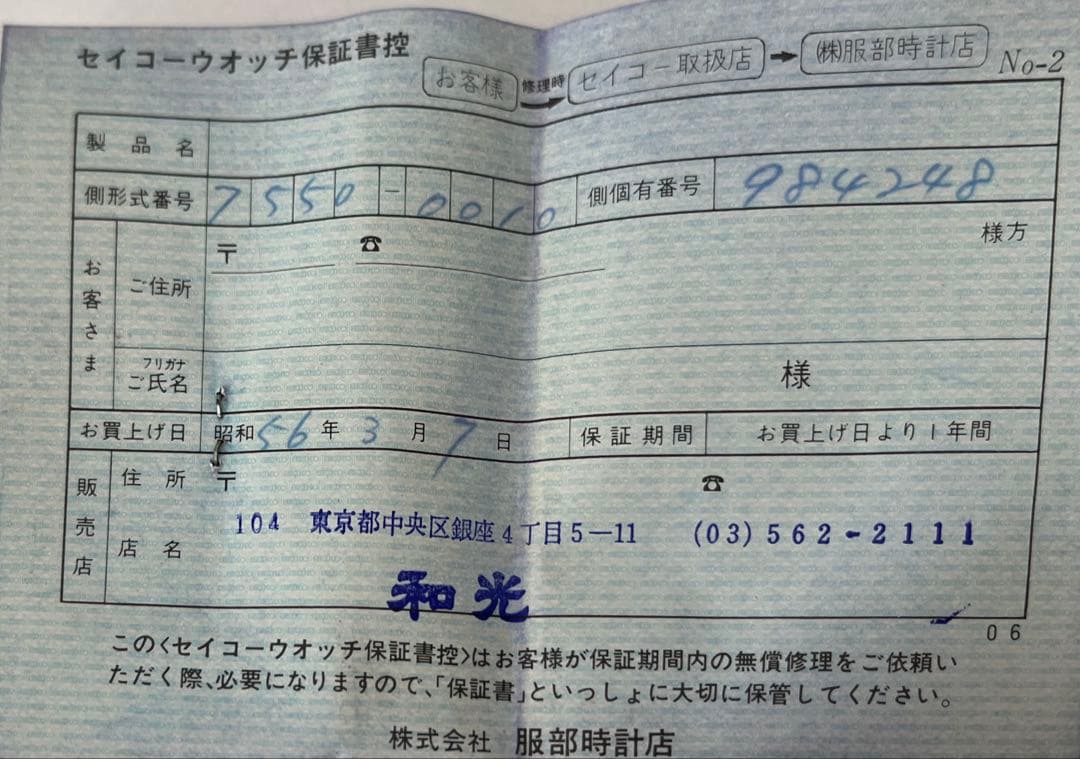 セイコーウオッチ保証書控
お客様 修理時 → セイコー取扱店 → ㈱服部時計店 No-2
製品名
側形式番号 7550-0010 側個有番号 984248
お客さま
ご住所 〒 ☎ 様方
フリガナ
ご氏名 様
お買上げ日 昭和56年3月7日 保証期間 お買上げ日より1年間
販売店
住所 〒 ☎
104 東京都中央区銀座4丁目5−11 (03)562-2111
店名 和光
06
この<セイコーウオッチ保証書控>はお客様が保証期間内の無償修理をご依頼い
ただく際、必要になりますので、「保証書」といっしょに大切に保管してください。
株式会社 服部時計店